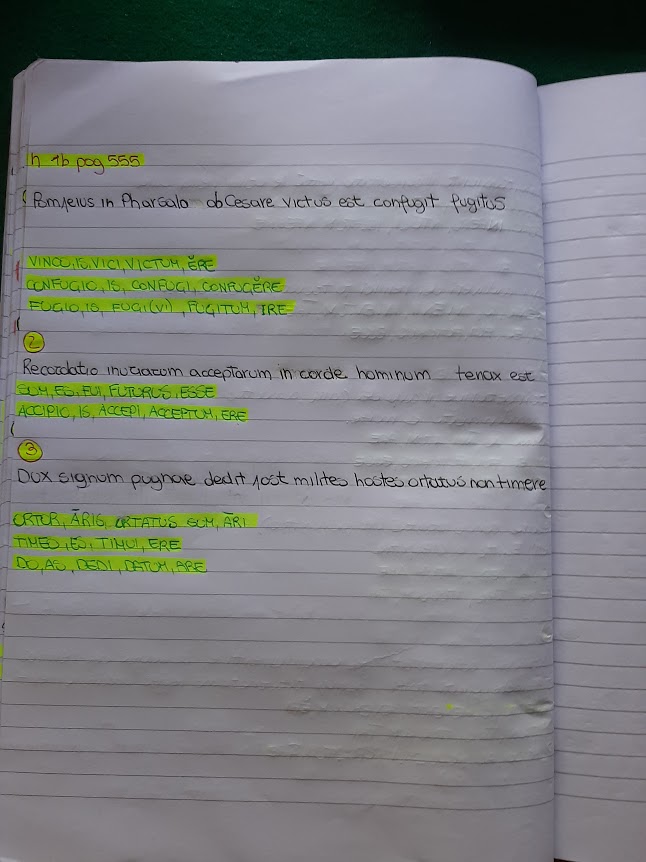 n 1b pag 555
Pompeius in Pharsalo ab Cesare victus est confugit fugitus
VINCO, IS, VICI, VICTUM, ĔRE
CONFUGIO, IS, CONFUGI, CONFUGĔRE
FUGIO, IS, FUGI(VI), FUGITUM, IRE
2
Recordatio iniuriarum acceptarum in corde hominum tenax est
SUM, ES, FUI, FUTURUS, ESSE
ACCIPIO, IS, ACCEPI, ACCEPTUM, ERE
3
Dux signum pugnae dedit post milites hostes ortatus non timere
ORTOR, ĀRIS, ORTATUS SUM, ĀRI
TIMEO, ES, TIMUI, ERE
DO, AS, DEDI, DATUM, ARE